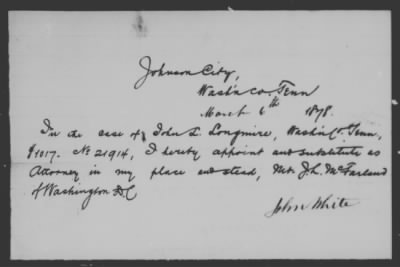 Johnson City,
Wash'n Co. Tenn
March 6th 1878.
In the case of John L. Longmire, Wash'n Co. Tenn,
No 21914, I hereby appoint and substitute as
Attorney in my place and stead, Mr. J.L. McFarland
of Washington D.C
John White